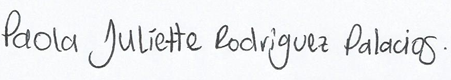 Paola Juliette Rodriguez Palacios.